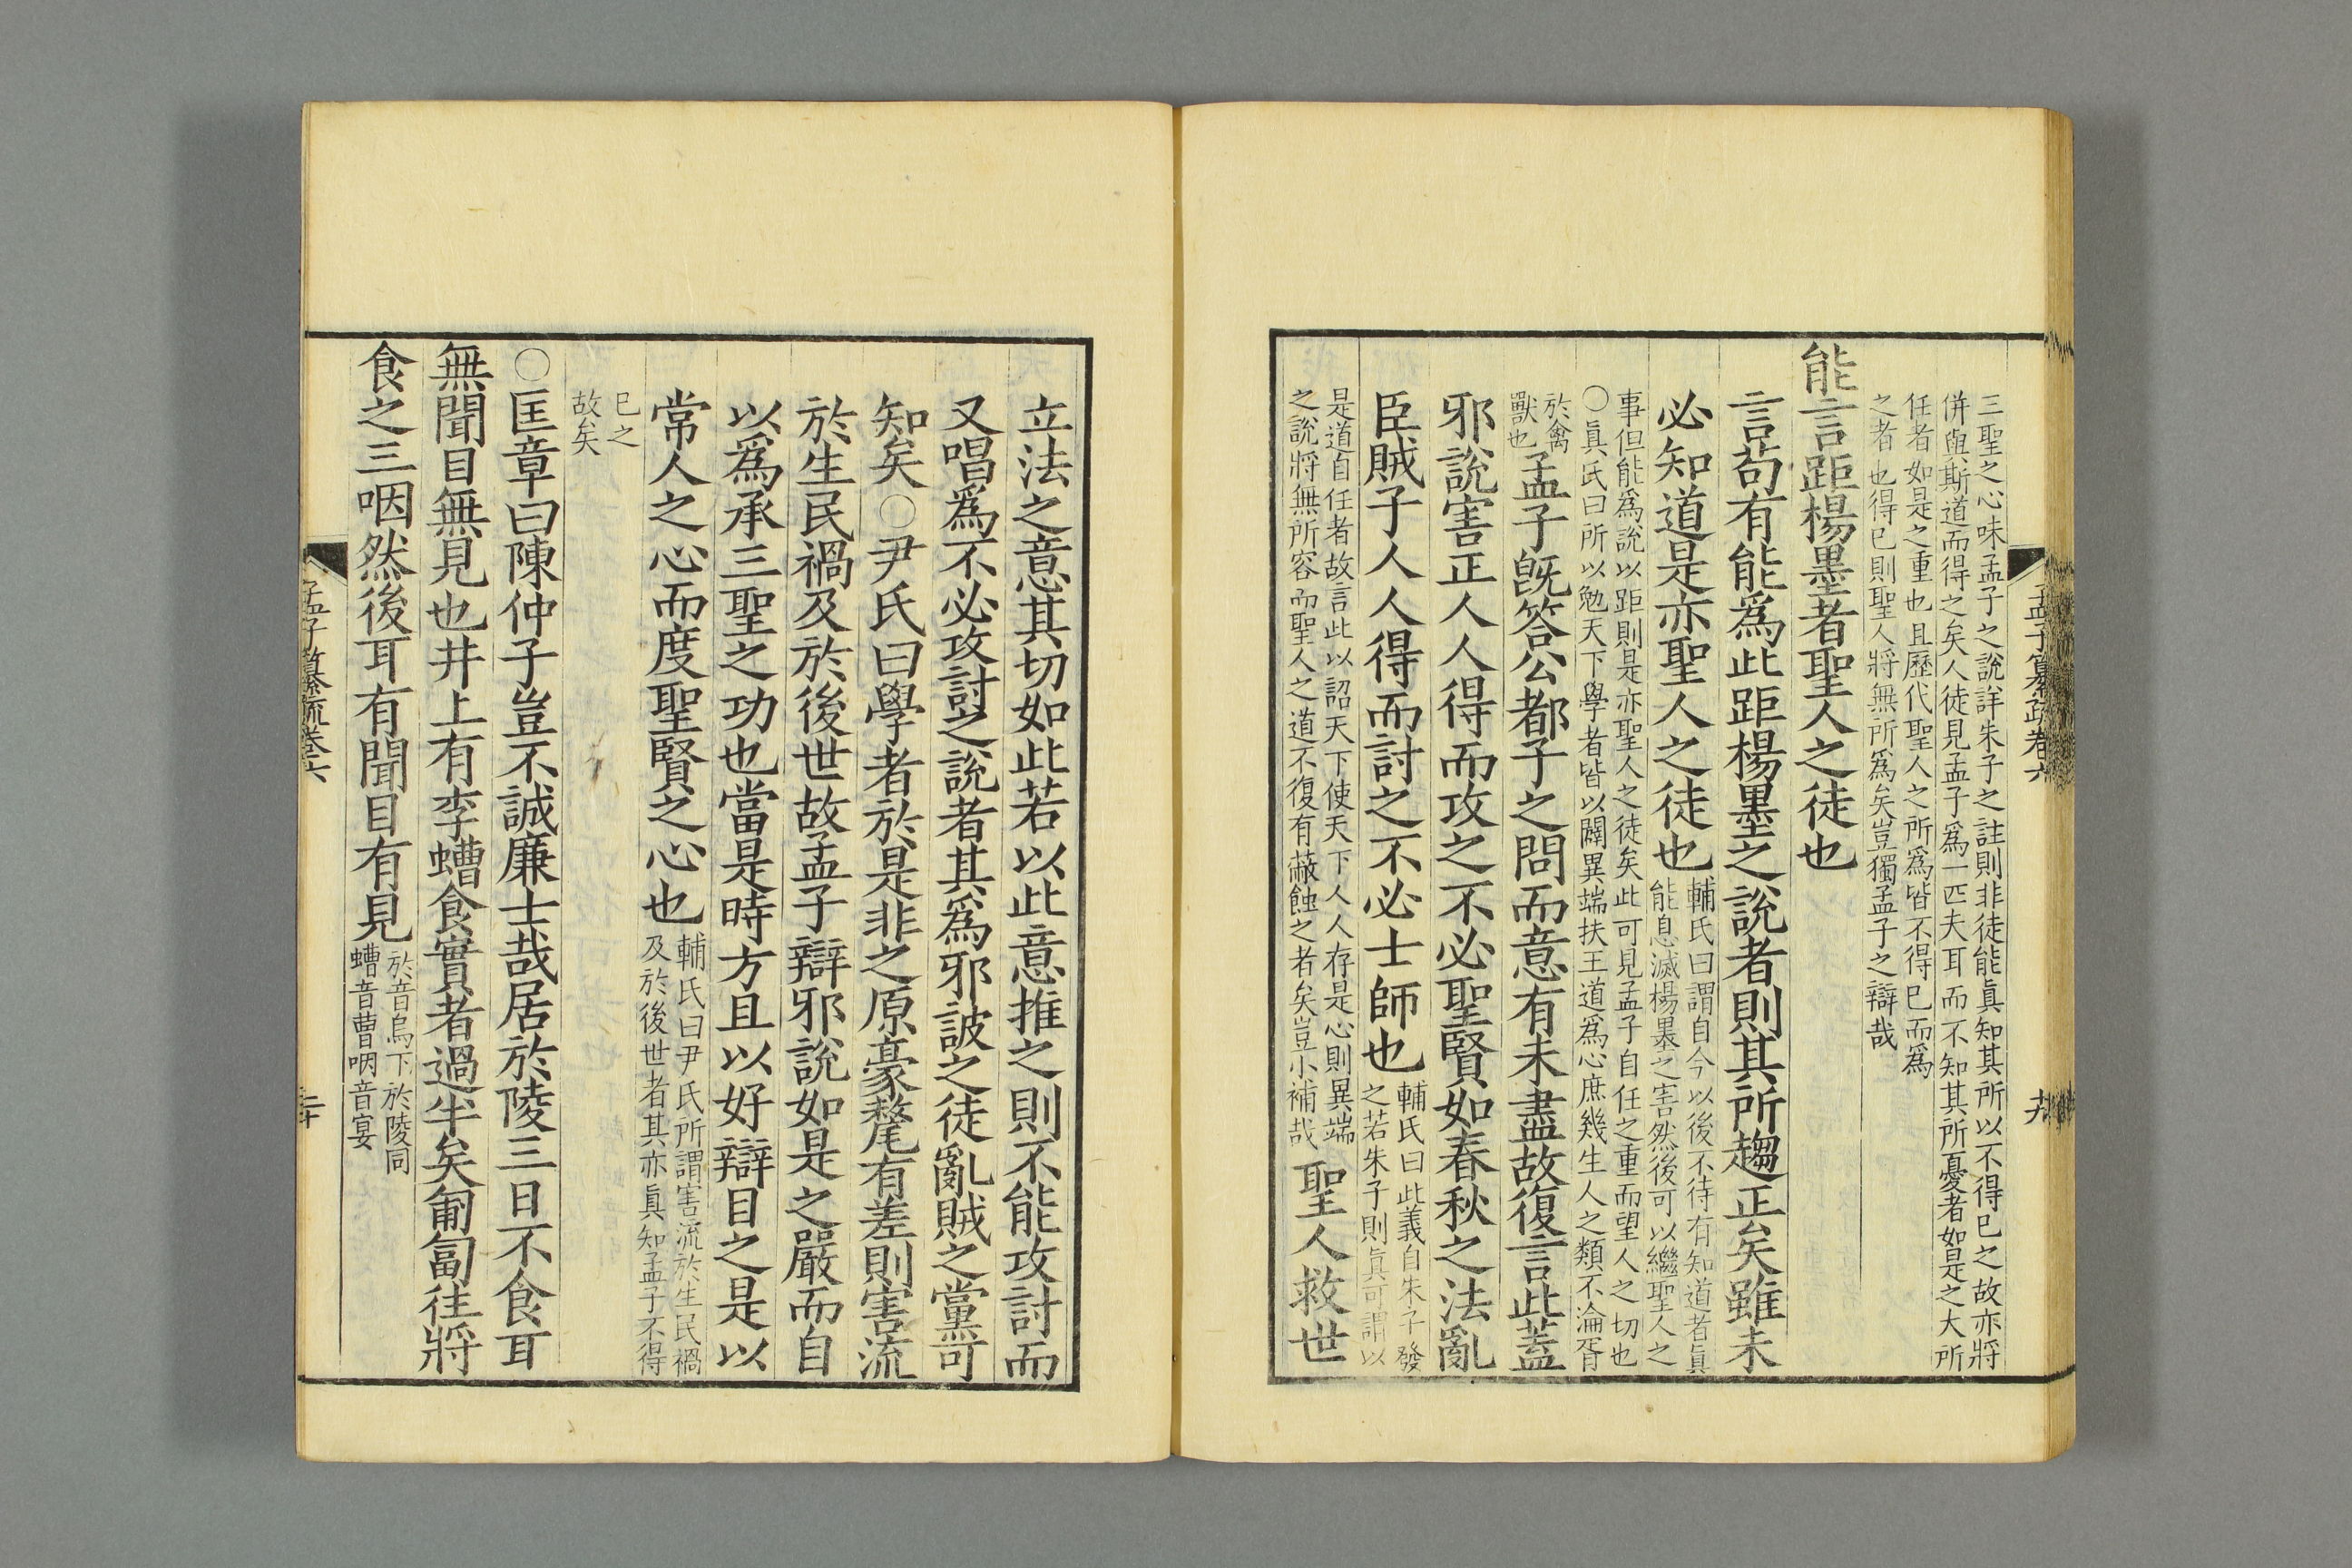 孟子纂疏卷六
三聖之心味孟子之說詳朱子之註則非徒能眞知其所以不得已之故亦將
併與斯道而得之矣人徒見孟子爲一匹夫耳而不知其所憂者如是之大所
任者如是之重也且歷代聖人之所爲皆不得已而爲
之者也得已則聖人將無所爲矣豈獨孟子之辯哉
能言距楊墨者聖人之徒也
言苟有能爲此距楊墨之說者則其所趨正矣雖未
必知道是亦聖人之徒也
輔氏曰謂自今以後不待有知道者眞
能息滅楊墨之害然後可以繼聖人之
事但能爲說以距則是亦聖人之徒矣此可見孟子自任之重而望人之切也
○眞氏曰所以勉天下學者皆以闢異端扶王道爲心庶幾生人之類不淪胥
於禽
獸也
孟子旣答公都子之問而意有未盡故復言此蓋
邪說害正人人得而攻之不必聖賢如春秋之法亂
臣賊子人人得而討之不必士師也
輔氏曰此義自朱子發
之若朱子則眞可謂以
是道自任者故言此以詔天下使天下人人存是心則異端
之說將無所容而聖人之道不復有蔽蝕之者矣豈小補哉
聖人救世
立法之意其切如此若以此意推之則不能攻討而
又唱爲不必攻討之說者其爲邪詖之徒亂賊之黨可
知矣○尹氏曰學者於是非之原豪釐有差則害流
於生民禍及於後世故孟子辯邪說如是之嚴而自
以爲承三聖之功也當是時方且以好辯目之是以
常人之心而度聖賢之心也
輔氏曰尹氏所謂害流於生民禍
及於後世者其亦眞知孟子不得
已之
故矣
○匡章曰陳仲子豈不誠廉士哉居於陵三日不食耳
無聞目無見也井上有李螬食實者過半矣匍匐往將
食之三咽然後耳有聞目有見
於音烏下於陵同
螬音曹咽音宴
孟子纂疏卷六
二十